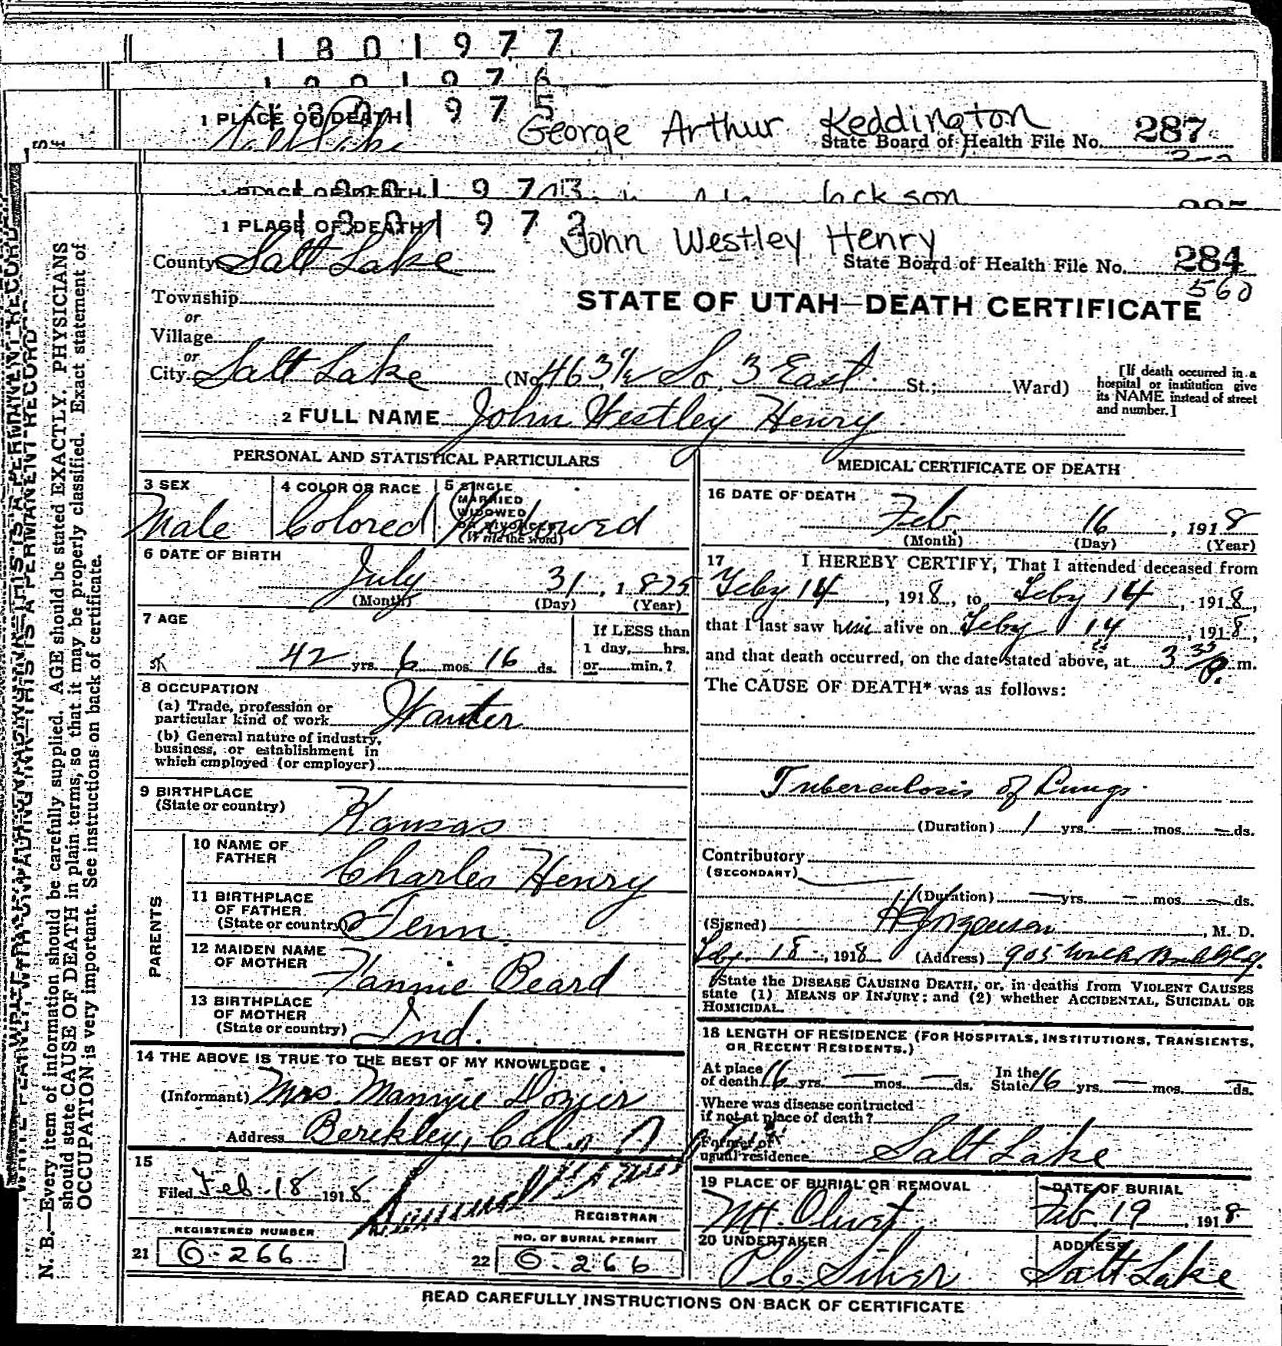 1801977
1975
1 PLACE OF DEATH
George Arthur Keddington
State Board of Health File No. 287
1 PLACE OF DEATH
1 PLACE OF DEATH
John Westley Henry
County Salt Lake
State Board of Health File No. 284
560
STATE OF UTAH—DEATH CERTIFICATE
Township
or
Village
or
City Salt Lake (No. 463½ So. 3 East St.; Ward)
[If death occurred in a hospital or institution give its NAME instead of street and number.]
2 FULL NAME John Westley Henry
PERSONAL AND STATISTICAL PARTICULARS
3 SEX
Male
4 COLOR OR RACE
Colored
5 SINGLE
MARRIED
WIDOWED
OR DIVORCED
(Write the word)
Widowed
6 DATE OF BIRTH
July 31, 1875
(Month) (Day) (Year)
7 AGE
42 yrs. 6 mos. 16 ds.
If LESS than
1 day, hrs.
or min.?
8 OCCUPATION
(a) Trade, profession or
particular kind of work Waiter
(b) General nature of industry,
business, or establishment in
which employed (or employer)
9 BIRTHPLACE
(State or country) Kansas
PARENTS
10 NAME OF
FATHER Charles Henry
11 BIRTHPLACE
OF FATHER
(State or country) Tenn.
12 MAIDEN NAME
OF MOTHER Fannie Beard
13 BIRTHPLACE
OF MOTHER
(State or country) Ind.
14 THE ABOVE IS TRUE TO THE BEST OF MY KNOWLEDGE
(Informant) Mrs. Mannie Dozier
Address Berekley, Cal.
15
Filed Feb. 18 1918
REGISTRAR
REGISTERED NUMBER
21 O-266
NO. OF BURIAL PERMIT
22 O-266
MEDICAL CERTIFICATE OF DEATH
16 DATE OF DEATH
Feb 16, 1918
(Month) (Day) (Year)
17 I HEREBY CERTIFY, That I attended deceased from
Feby 14, 1918, to Feby 14, 1918,
that I last saw him alive on Feby 14, 1918,
and that death occurred, on the date stated above, at 3 35 P. m.
The CAUSE OF DEATH* was as follows:
Tuberculosis of Lungs
(Duration) 1 yrs. — mos. — ds.
Contributory
(SECONDARY)
(Duration) — yrs. — mos. — ds.
(Signed) M. D.
Feby. 18, 1918 (Address) 905
*State the DISEASE CAUSING DEATH, or, in deaths from VIOLENT CAUSES
state (1) MEANS OF INJURY; and (2) whether ACCIDENTAL, SUICIDAL OR
HOMICIDAL.
18 LENGTH OF RESIDENCE (FOR HOSPITALS, INSTITUTIONS, TRANSIENTS,
OR RECENT RESIDENTS.)
At place
of death 16 yrs. — mos. — ds.
In the
State 16 yrs. — mos. — ds.
Where was disease contracted
if not at place of death?
Former or
usual residence Salt Lake
19 PLACE OF BURIAL OR REMOVAL
Mt. Olivet
DATE OF BURIAL
Feb. 19, 1918
20 UNDERTAKER
ADDRESS
Salt Lake
READ CAREFULLY INSTRUCTIONS ON BACK OF CERTIFICATE
N. B.—Every item of information should be carefully supplied. AGE should be stated EXACTLY. PHYSICIANS
should state CAUSE OF DEATH in plain terms, so that it may be properly classified. Exact statement of
OCCUPATION is very important. See instructions on back of certificate.